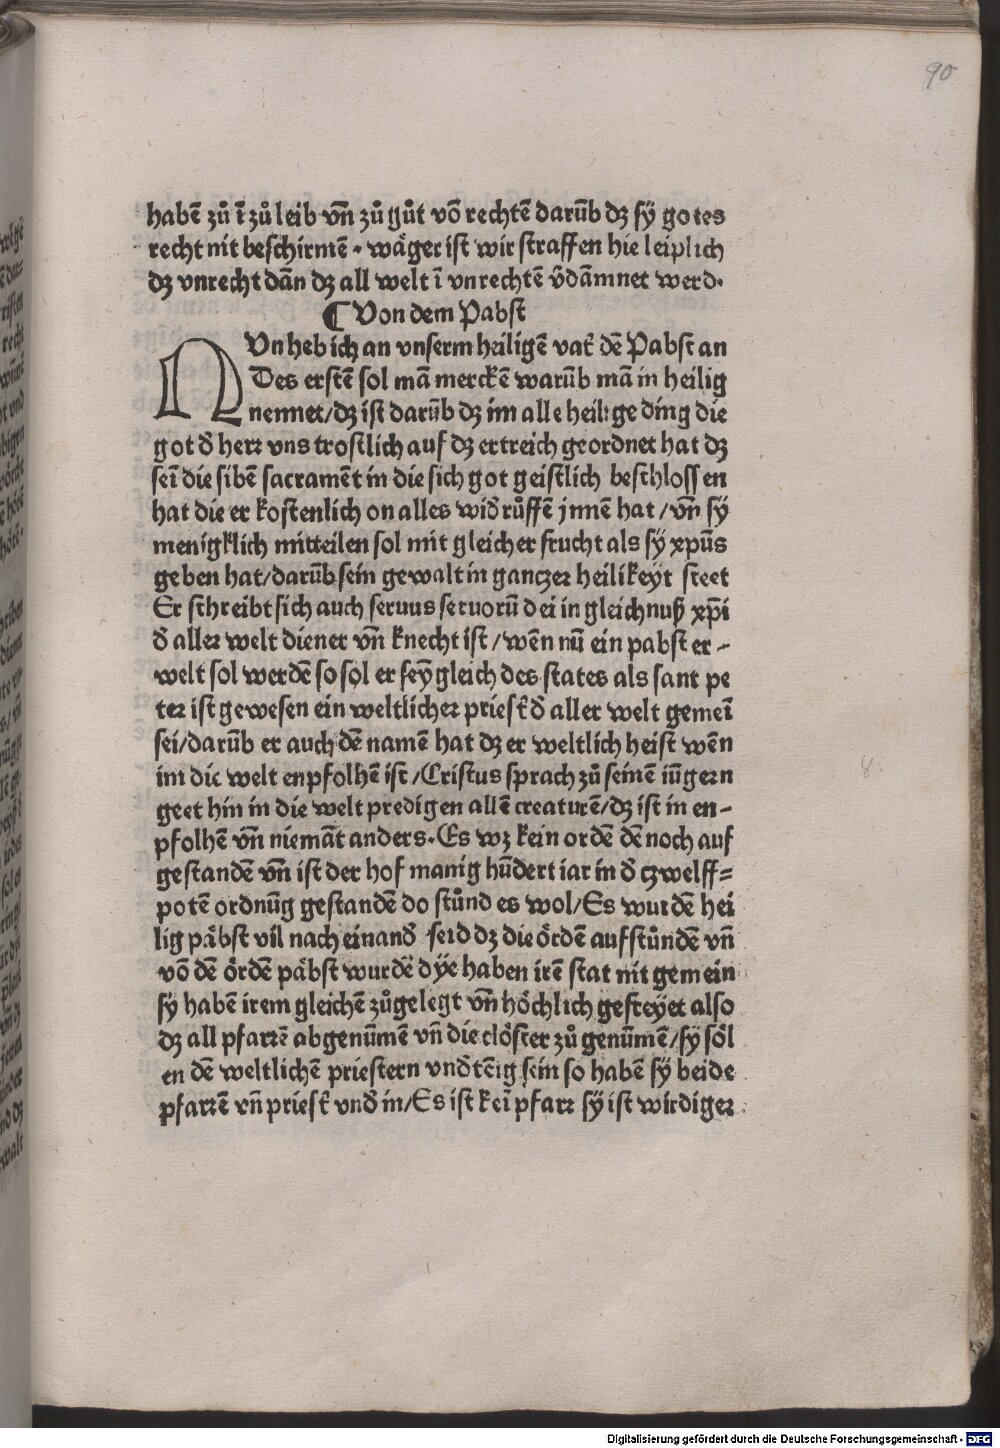 90
habē zů ī zů leib vn̄ zů gůt võ rechtē darūb dz sÿ gotes
recht nit beschirmē · wäger ist wir straffen hie leiplich
dz vnrecht dān dz all welt ī vnrechtē v̄dāmnet werd·
¶ Von dem Pabst
NUn heb ich an vnserm heiligē vat̄ dē Pabst an
Des erstē sol mā merckē warūb mā in heilig
nennet/dz ist darūb dz im alle heilige ding die
got d̄ herr vns trostlich auf dz ertreich geordnet hat dz
seī die sibē sacramēt in die sich got geistlich beschlossen
hat die er kostenlich on alles wid̄růffē jnnen hat/vn̄ sÿ
menigklich mitteilen sol mit gleicher frucht als sÿ xpūs
geben hat/darūb sein gewalt in ganczer heilikeÿt steet
Er schreibt sich auch seruus seruorū dei in gleichnuß xp̄i
d̄ aller welt diener vn̄ knecht ist/wēn nū ein pabst er-
welt sol werdē so sol er seÿ gleich des states als sant pe
ter ist gewesen ein weltlicher priest̄ d̄ aller welt gemeī
sei/darūb er auch dē namē hat dz er weltlich heist wēn
im die welt enpfolhē ist/Cristus sprach zů seinē iūgern
geet hin in die welt predigen allē creaturē/dz ist in en-
pfolhē vn̄ niemāt anders·Es wz kein ordē dēnoch auf
gestandē vn̄ ist der hof manig hūdert iar in d̄ czwelff=
potē ordnūg gestandē do stůnd es wol/Es wurdē hei
lig päbst vil nach einand̄ seid dz die ördē aufstůndē vn̄
võ dē ördē päbst wurdē dÿe haben irē stat nit gemein
sÿ habē irem gleichē zůgelegt vn̄ höchlich gefreÿet also
dz all pfarrē abgenūmē vn̄ die clöster zů genūmē/sÿ söl
en dē weltlichē priestern vnd̄tēig sein so habē sÿ beide
pfarrē vn̄ priest̄ vnd̄ in/Es ist keī pfarr sÿ ist wirdiger
8.
Digitalisierung gefördert durch die Deutsche Forschungsgemeinschaft - DFG